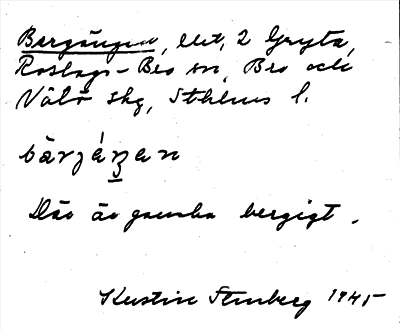 Bergängen, lht, 2 Gryta,
Roslags-Bro sn, Bro och
Välö skg, Sthlms l.
bärjáŋan
Där är ganska bergigt.
Kerstin Stenberg 1945